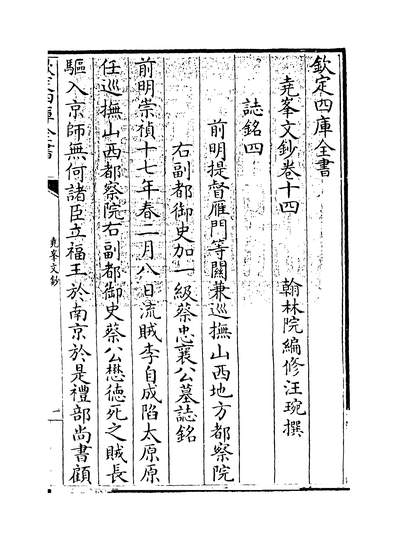 欽定四庫全書
堯峯文鈔卷十四
翰林院編修汪琬撰
誌銘四
前明提督雁門等關兼巡撫山西地方都察院
右副都御史加一級蔡忠襄公墓誌銘
前明崇禎十七年春二月八日流賊李自成陷太原原
任巡撫山西都察院右副都御史蔡公懋德死之賊長
驅入京師無何諸臣立福王於南京於是禮部尚書顧
欽定四庫全書
堯峯文鈔
一